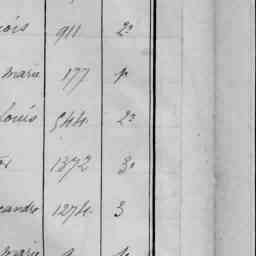 ois 911 2º
marie 177 p
Louis 544 2º
1372 3º
eandre 1274 3
marie